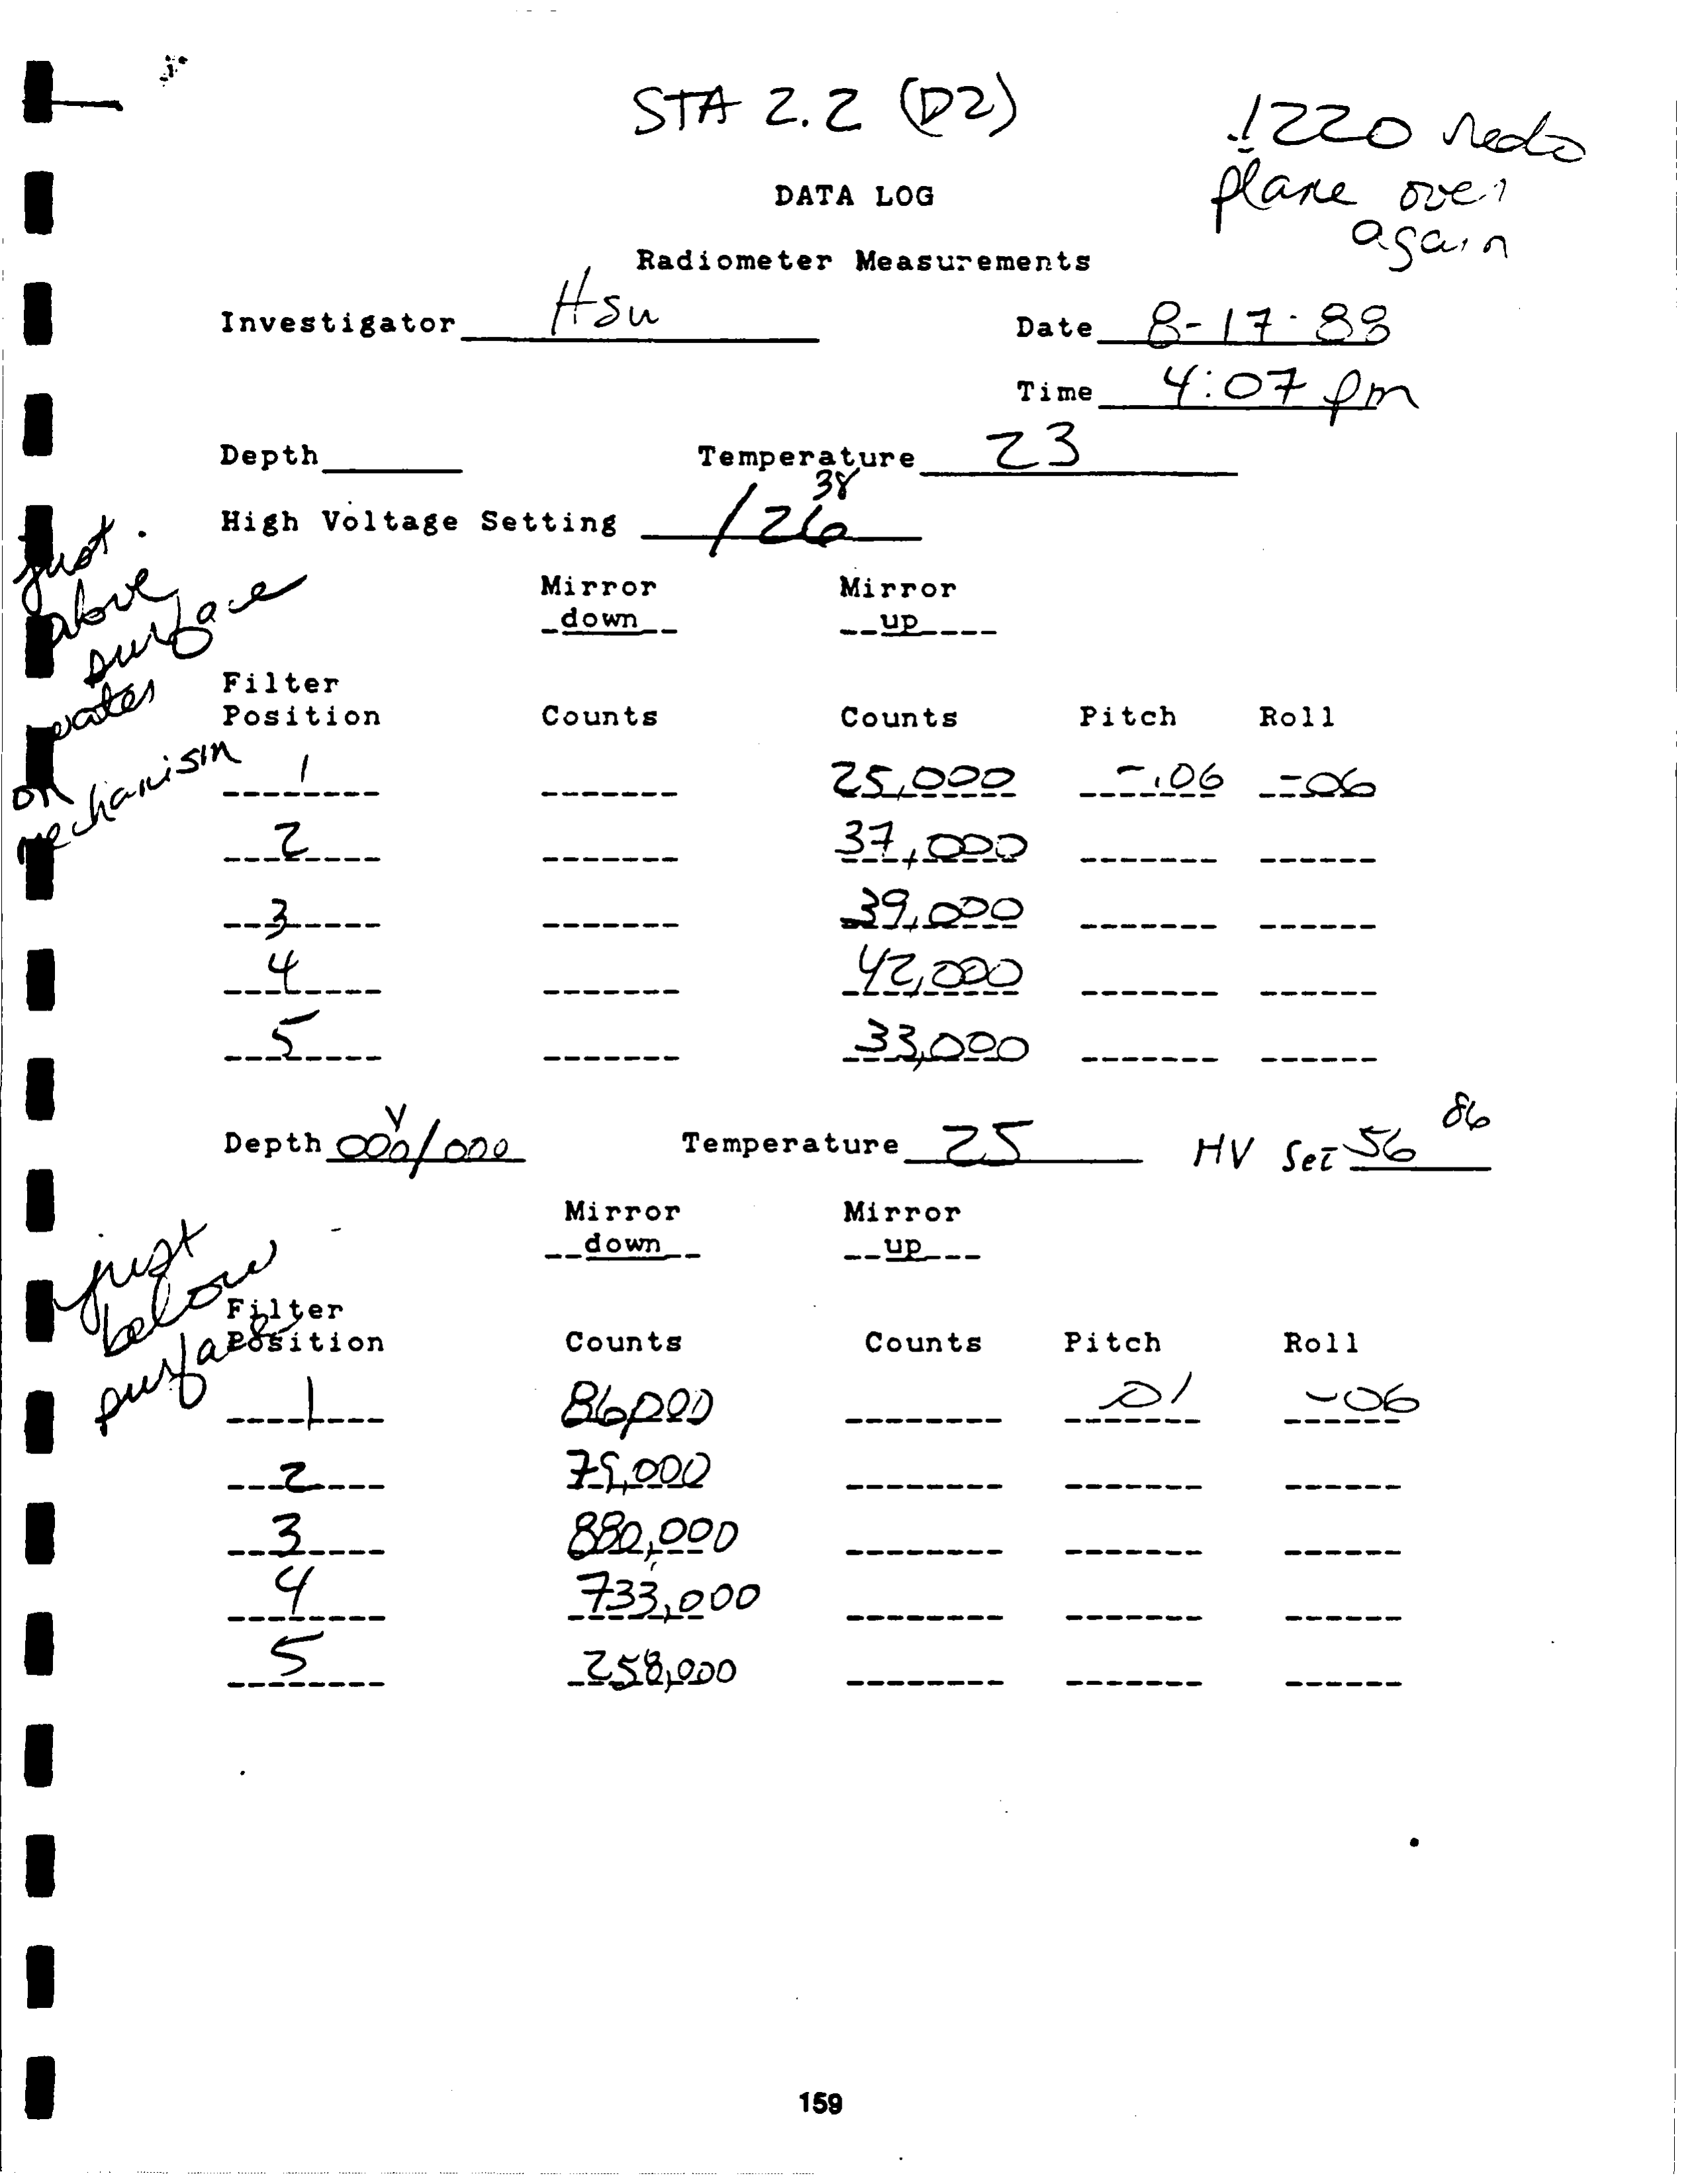 STA 2.2 (D2)
.1220 redo
plane over
again
DATA LOG
Radiometer Measurements
Investigator Hsu
Date 8-17-88
Time 4:07 pm
Depth
Temperature 23
High Voltage Setting 126 38
just
above
surface
water
on
mechanism
Mirror down
Mirror up
Filter
Position Counts Counts Pitch Roll
1 25,000 -.06 -06
2 37,000
3 39,000
4 42,000
5 33,000
Depth 000/000 Temperature 25 HV Set 56 86
just
below
surface
Mirror down
Mirror up
Filter
Position Counts Counts Pitch Roll
1 86,000 01 -06
2 000
3 880,000
4 733,000
5 258,000
159